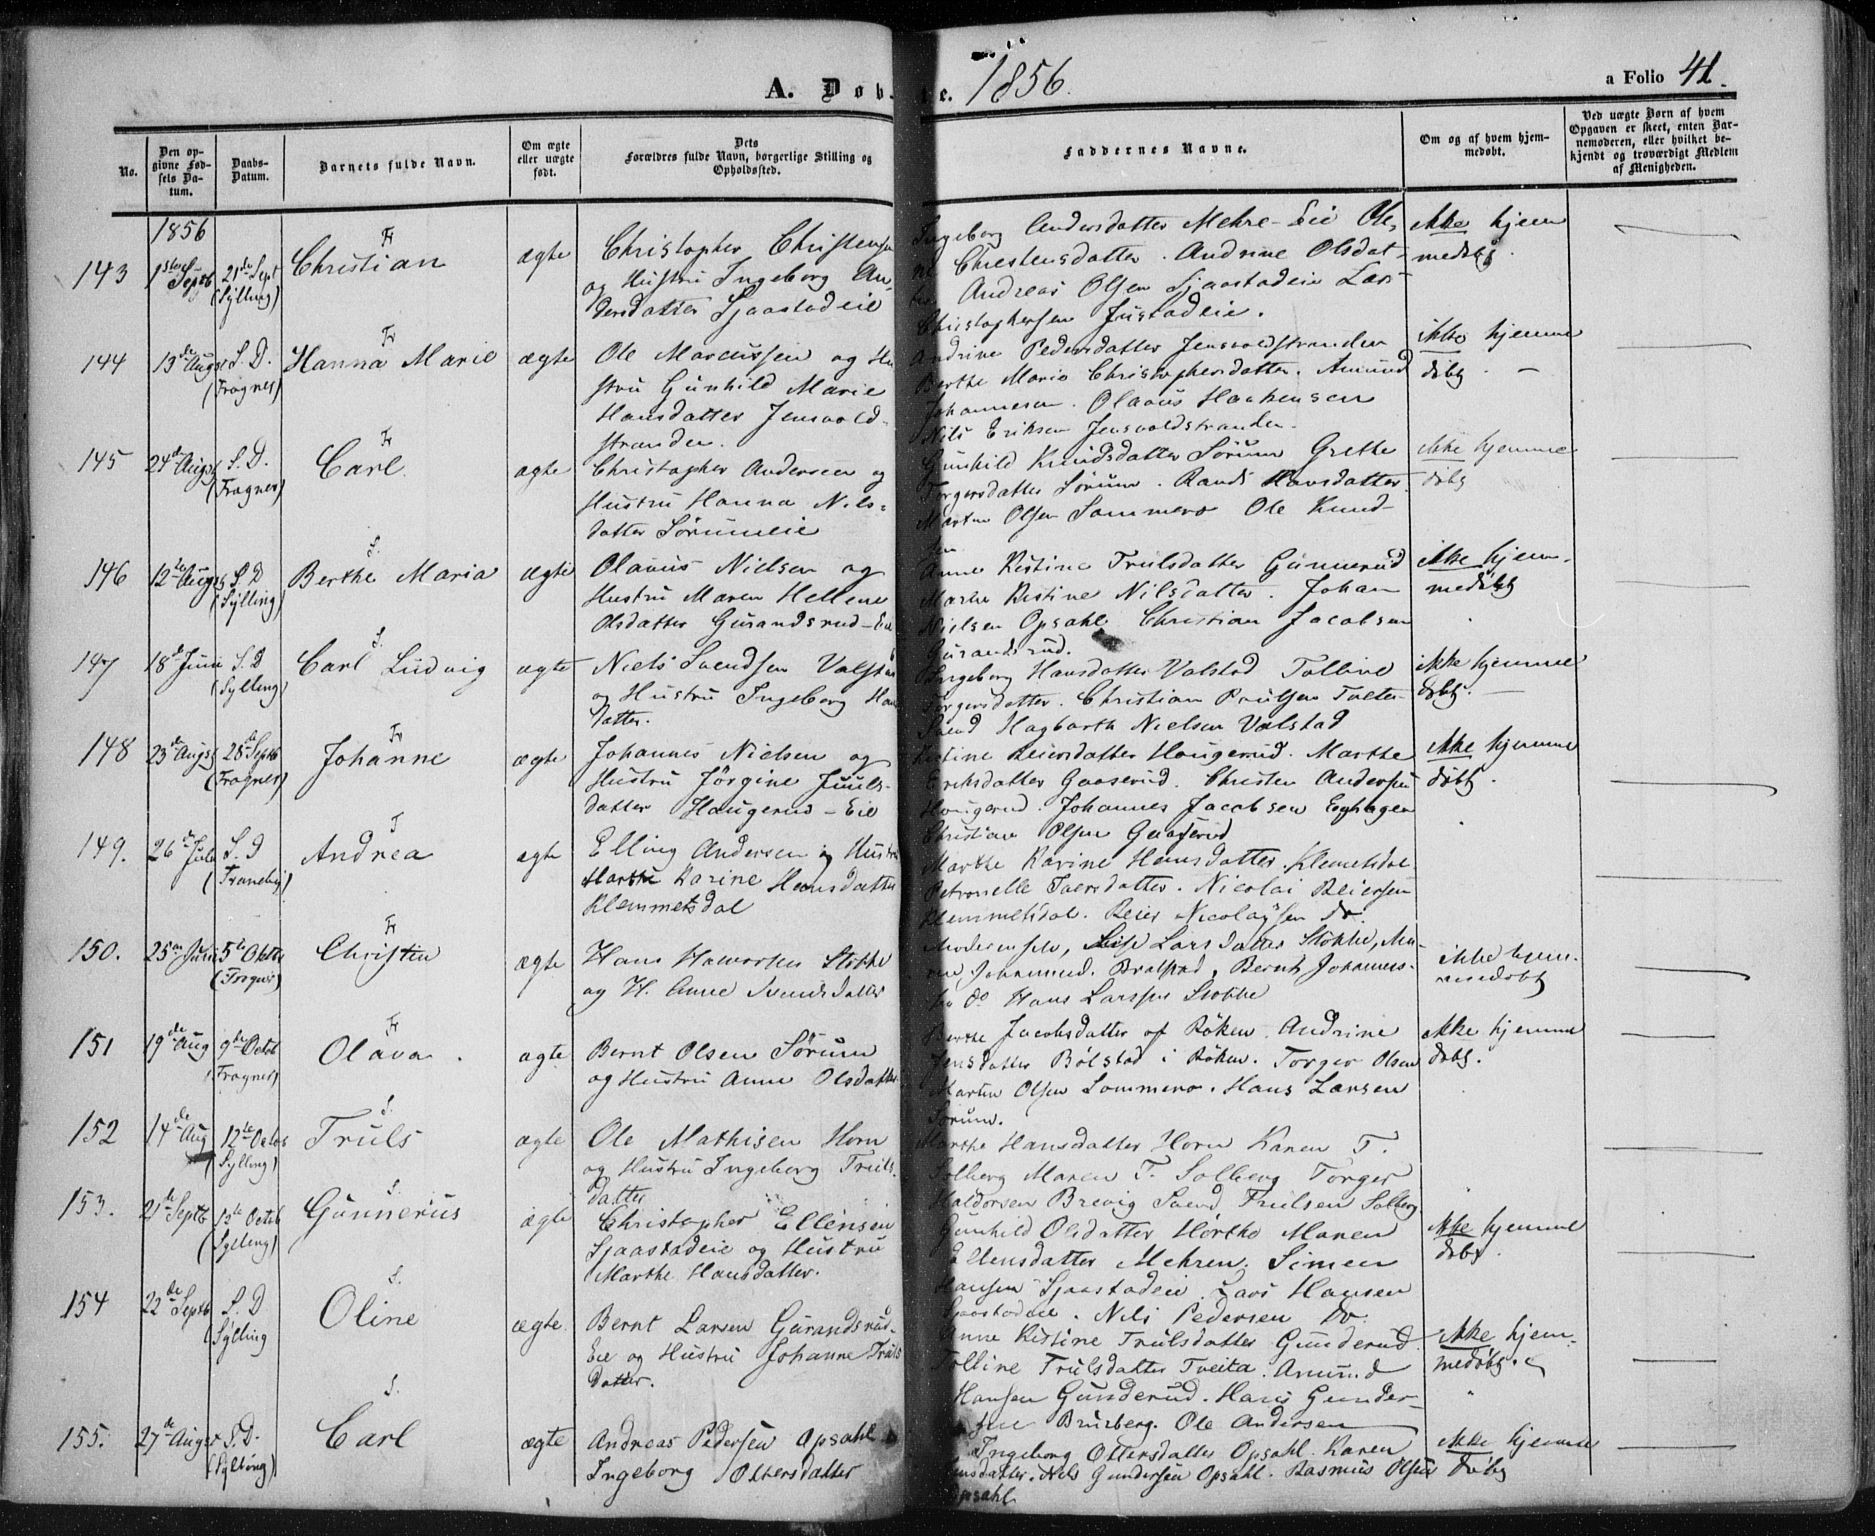 A. Døb-
te. 1856.
a Folio 41.
No.
Den op-
givne Fød-
sels Da-
tum.
Daabs-
Datum.
Barnets fulde Navn.
Om ægte
eller uægte
født.
Dets
Forældres fulde Navn, borgerlige Stilling og
Opholdssted.
Faddernes Navne.
Om og af hvem hjem-
medøbt.
Ved uægte Børn af hvem
Opgaven er skeet, enten Bar-
nemoderen, eller hvilket be-
kjendt og troværdigt Medlem
af Menigheden.
1856
143
1ste Septb
21de Sept
(Sylling)
Fr
Christian
ægte
Christopher Christensen
og Hustru Ingeborg An-
dersdatter Sjaastadeie
Ingeborg Andersdatter Mehre-Eie Ole-
Christensdatter. Andrine Olsdat-
Andreas Olsen Sjaastadeie Lars
Christophersen Justadeie.
ikke hjem
medøbt.
144
13de Augst
S. D.
(Frogner)
Fr
Hanna Marie
ægte
Ole Marcussen og Hu
stru Gunhild Marie
Hansdatter Jensvold-
stranden.
Andrine Pedersdatter Jensvoldstranden
Berthe Marie Christophersdatter. Amund
Johannesen. Olaus Haakensen
Nils Eriksen Jensvoldstranden.
ikke hjemme
døbt.
145
24de Augst
S. D.
(Frogner)
Fr
Carl
ægte
Christopher Andersen og
Hustru Hanna Nils-
datter Sørumeie
Gunhild Knudsdatter Sørum Grethe
Torgersdatter Sørum. Randi Hansdatter.
Martin Olsen Sommero Ole Knud-
sen
ikke hjemme
døbt
146
12te Augst
S. D
(Sylling)
S.
Berthe Maria
ægte
Olaus Nielsen og
Hustru Maren Hellene
Olsdatter Gurandsrud-Eie
Anne Kistine Trulsdatter Gunnerud
Marthe Kistine Nilsdatter. Johan
Nielsen Opsahl Christian Jacobsen
Gurandsrud.
ikke hjem-
medøbt
147
18de Juni
S. D
(Sylling)
S.
Carl Ludvig
ægte
Niels Svendsen Valstad
og Hustru Ingeborg Han
datter.
Ingeborg Hansdatter Valstad Tolline
Torgersdatter. Christian Paulsen Tveter
Svend Hagbarth Nielsen Valstad
ikke hjemme
døbt.
148
23de Augst
28de Septb
(Frogner)
Fr
Johanne
ægte
Johannes Nielsen og
Hustru Jørgine Juuls-
datter Haugerud-Eie
Kistine Reiersdatter Haugerud. Marthe
Eriksdatter Gaaserud. Christen Andersen
Haugerud. Johannes Jacobsen Eghagen
Christian Olsen Gaaserud
ikke hjemme
døbt.
149.
26de Juli
S. D
(Traneby)
T
Andrea
ægte
Elling Andersen og Hustru
Marthe Karine Hansdatter
Klemmetsdal
Marthe Karine Hansdatter. Klemetsdal
Petronelle Iversdatter. Nicolai Reiersen
Klemmetsdal. Reier Nicolaysen do.
150.
25de Juni
5te Oktbr
(Frogner)
Fr
Christen
ægte
Hans Halvorsen Stokke
og H. Anne Svendsdatter
Moderen selv, Lise Larsdatter Stokke, Ma-
ren Johannesd. Bratstad, Bernt Johannes-
sen do Hans Larssen Stokke
ikke hjem-
medøbt
151
19de Aug
9de Octob
(Frogner)
Fr
Olava.
ægte
Bernt Olsen Sørum
og Hustru Anne Olsdatter
Berthe Jacobsdatter af Røken. Andrine
Jensdatter Bølstad i Røken. Torger Olsen
Martin Olsen Sommero. Hans Larsen
Sørum.
ikke hjemme
døbt.
152
14de Aug
12te Octob
(Sylling)
S.
Truls
ægte
Ole Mathisen Horn
og Hustru Ingeborg Truls-
datter
Marthe Hansdatter Horn Karen T.
Solberg Maren T. Solberg Torger
Haldorsen Brevig Svend Trulsen Solberg
153.
21de Septb
13de Octob
(Sylling)
S.
Gunnerius
ægte
Christopher Ellensen
Sjaastadeie og Hustru
Marthe Hansdatter.
Gunhild Olsdatter Hørthe Maren
Ellensdatter Mehren. Simen
Hansen Sjaastadeie Lars Hansen
Sjaastadeie. Nils Pedersen do.
ikke hjemme
døbt.
154
22de Septb
S. D
(Sylling
S.
Oline
ægte.
Bernt Larsen Gurandsrud-
Eie og Hustru Johanne Truls
datter.
Anne Kistine Trulsdatter Gunderud.
Tolline Trulsdatter Tveita. Amund
Hansen Gunderud. Hans Gunder-
sen Brusberg. Ole Andersen
ikke hjem-
medøbt.
155.
27de Augst
S. D.
(Sylling)
S.
Carl
ægte
Andreas Pedersen Opsahl
Ingeborg Ottersdatter
Ingeborg Ottersdatter Opsahl. Karen
Nels Gundersen Opsahl. Rasmus Olsen
Opsahl
ikke hjemme
døbt